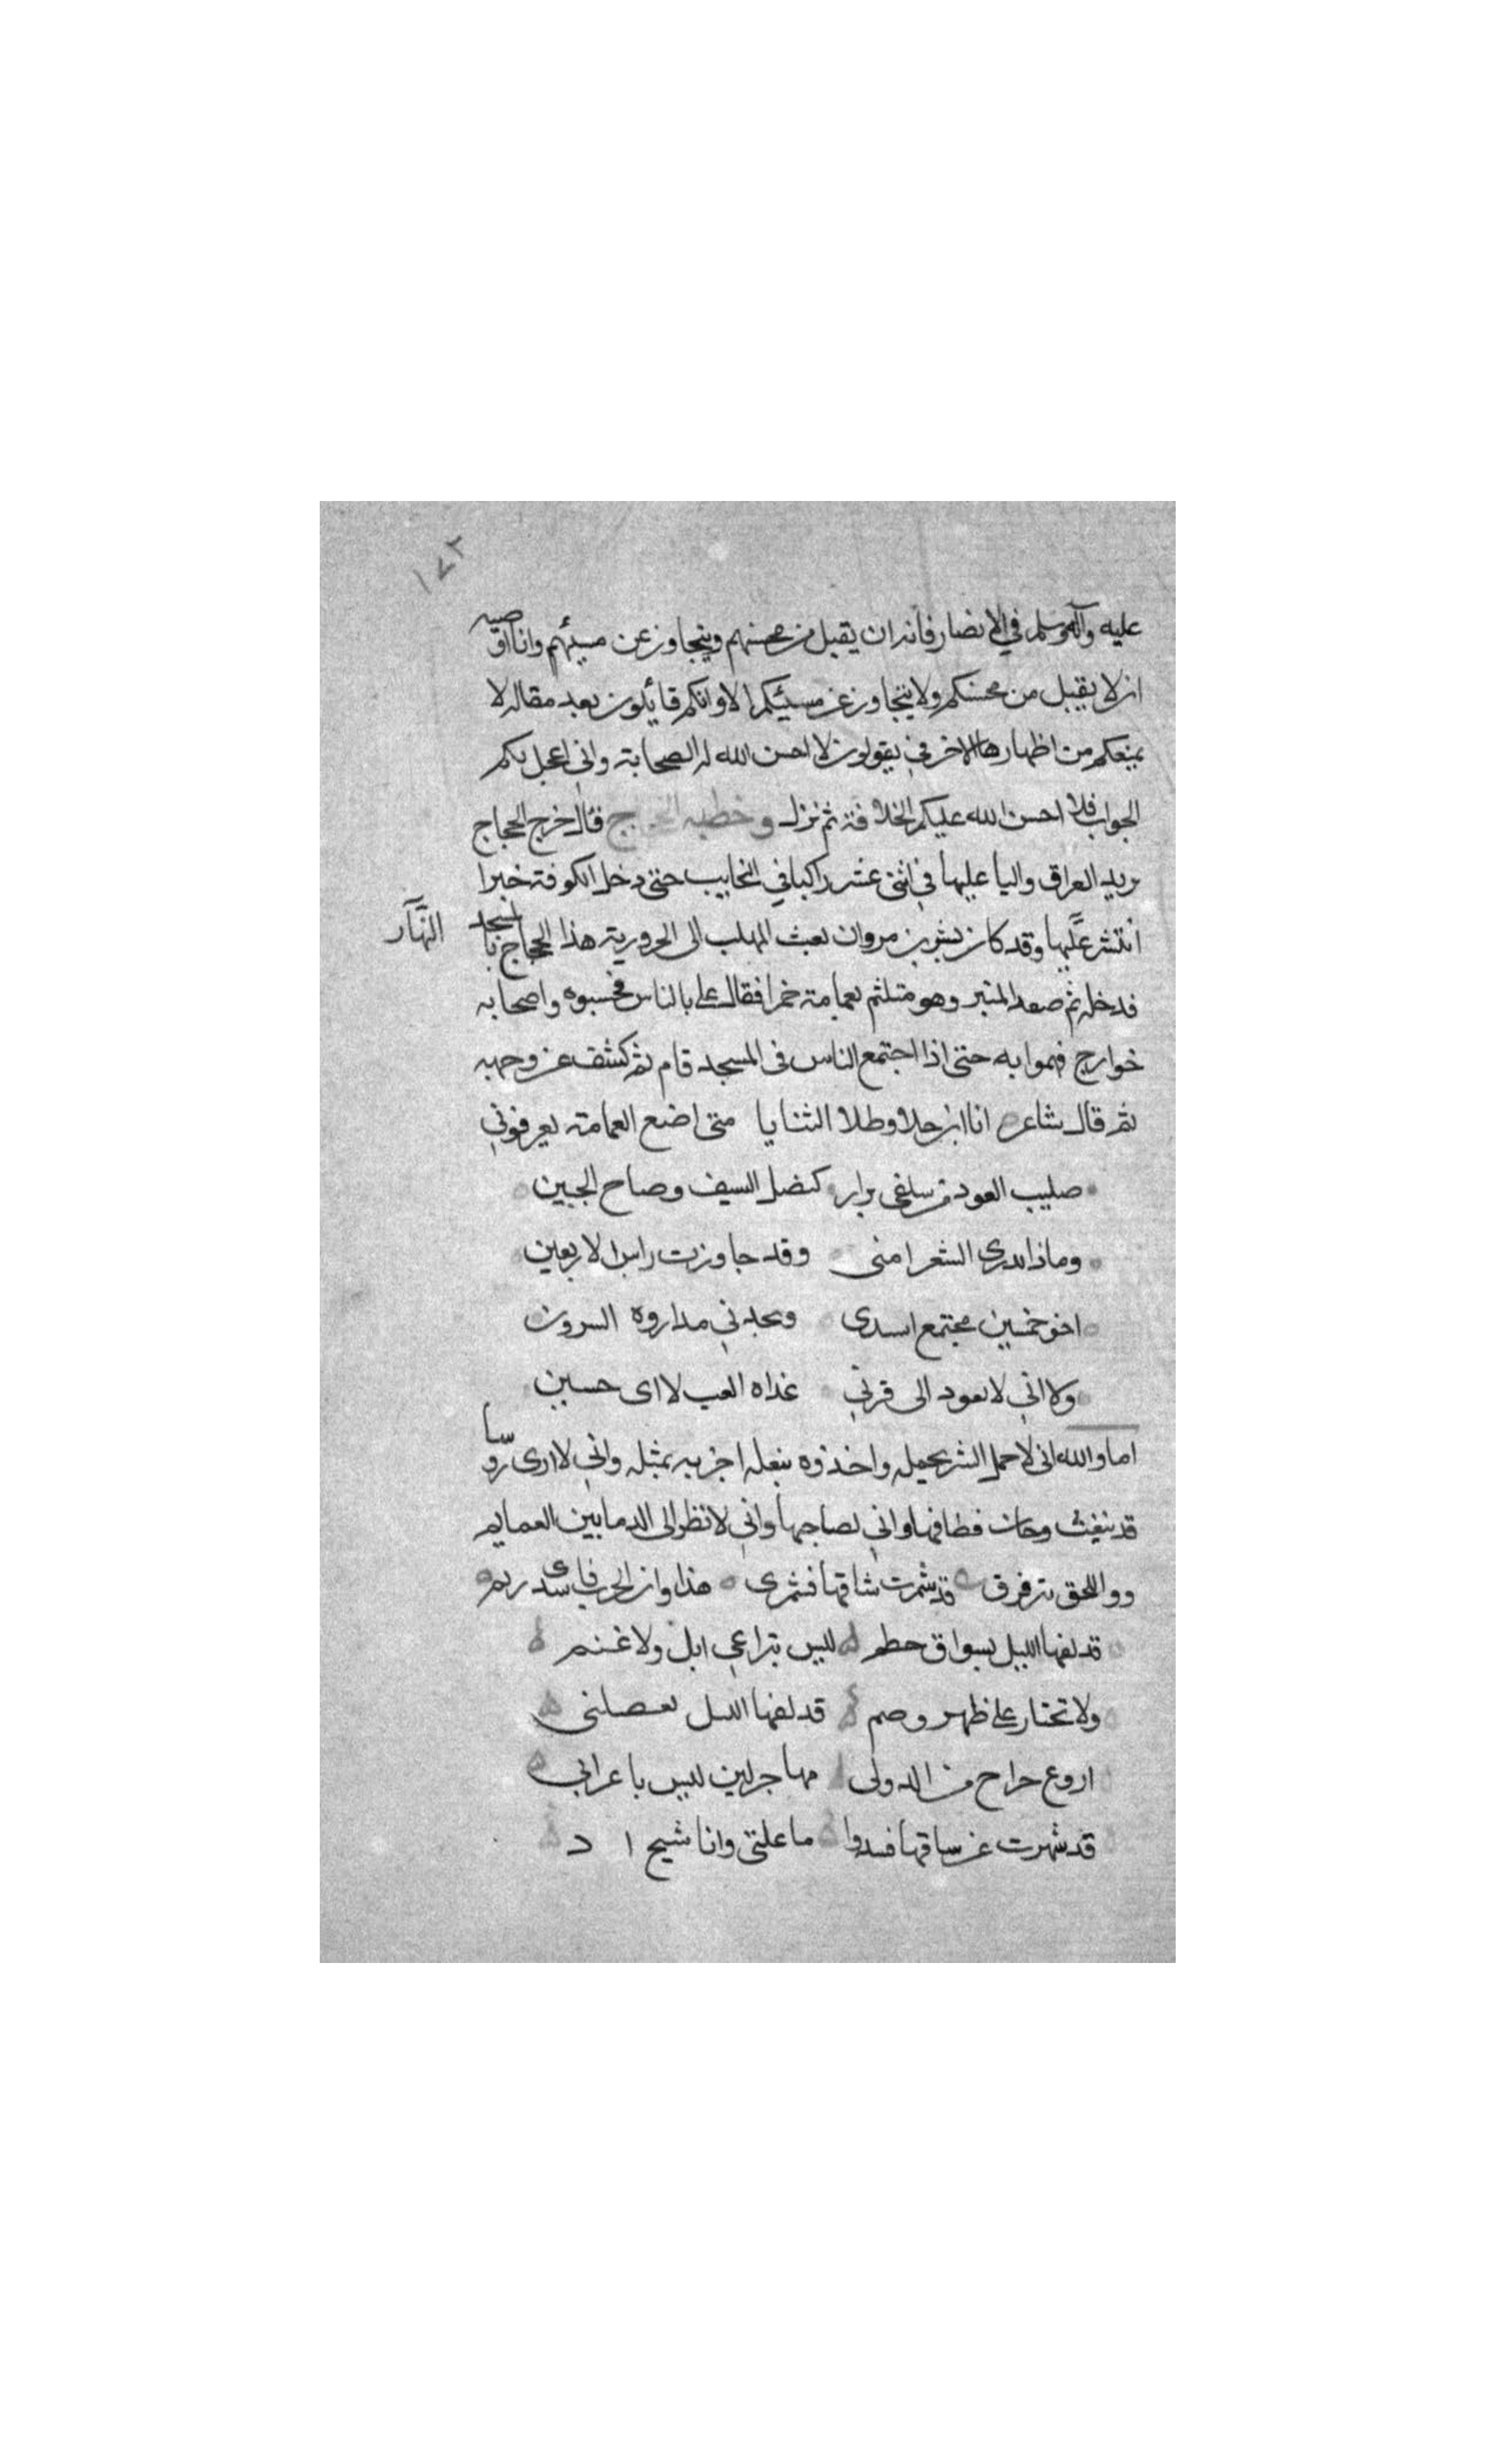 ١٧٢
عليه وآله وسلم في الانصار فانه ان يقبل من محسنهم ويتجاوز عن مسيئهم وانا اوصيه
ان لا يقبل من محسنكم ولا يتجاوز عن مسيئكم الا وانكم قائلون بعد مقاله لا
يمنعكم من اظهارها الا خوفي يقولون لا احسن الله له الصحابة واني اعجل لكم
الجواب فلا احسن الله عليكم الخلافة ثم نزل وخطبه الحجاج فقال خرج الحجاج
يريد العراق واليا عليها في اثنى عشر راكبا في النجايب حتى دخل الكوفة
انتشر عليها وقد كان بشر بن مروان بعث المهلب الى الحرورية هذا الحجاج بالمسجد
النهار
فدخله ثم صعد المنبر وهو متلثم بعمامة خمرا فقال علي بالناس فحسبوه واصحابه
خوارج فهموا به حتى اذا اجتمع الناس في المسجد قام ثم كشف عن وجهه
ثم قال شاعر انا ابن جلا وطلا الثنايا متى اضع العمامة يعرفوني
صليب العود من كنصل السيف وضاح الجبين
وماذا يدرى الشعرا منى وقد جاوزت راس الاربعين
اخو خمسين مجتمع اسدى مداروه السرون
واني لا يعود الى قرني غداه
اما والله اني لاحمل الشر بحمله واخذوه بنعله اجزيه بمثله واني لا ارى روسا
قد وحان قطافها واني لصاحبها واني لا نظر الى الدما بين العمايم
واللحق تترقرق قد شمرت ساقها فشمرى هذا وان الحرب
قد لفها الليل بسواق حطم ليس براعي ابل ولا غنم
ولا على ظهر وضم قد لفها الليل بعصلبى
اروع خراج من الدوى مهاجر ليس باعرابي
قد شمرت عن ساقها فشدوا ما علتي وانا شيخ اد